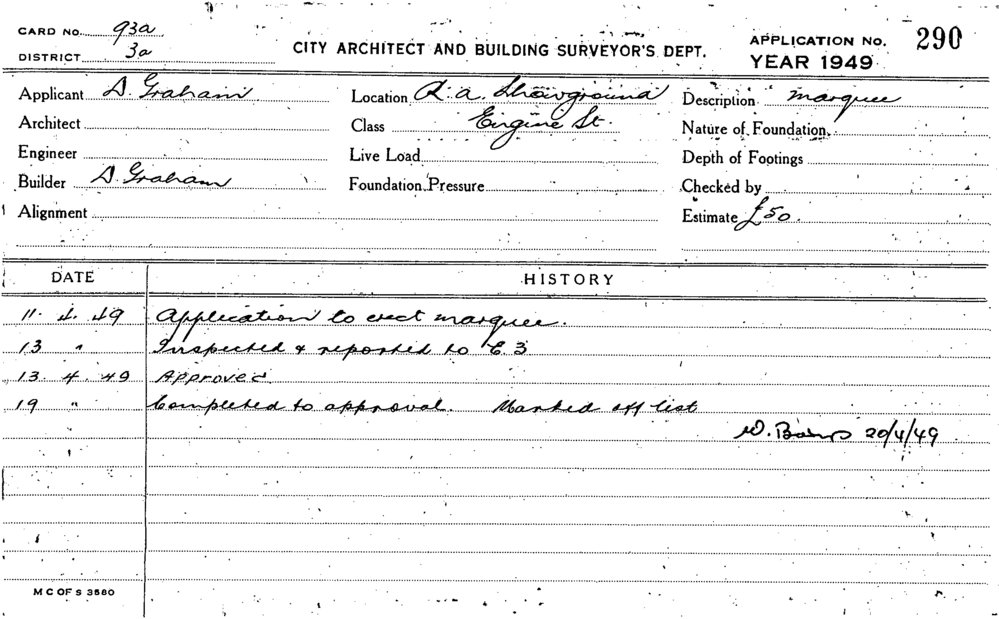 CARD NO. 93a
DISTRICT 3a
CITY ARCHITECT AND BUILDING SURVEYOR'S DEPT.
APPLICATION No. 290
YEAR 1949
Applicant D. Graham Location R.A. Showground Description marquee
Architect Class Engine St. Nature of Foundation
Engineer Live Load Depth of Footings
Builder D. Graham Foundation Pressure Checked by
Alignment Estimate £50.
DATE HISTORY
11. 4. 49 Application to erect marquee.
13 " Inspected & reported to E.3
13. 4. 49 Approved
19 " Completed to approval. Marked off list
W. 20/4/49
M C OF S 3580